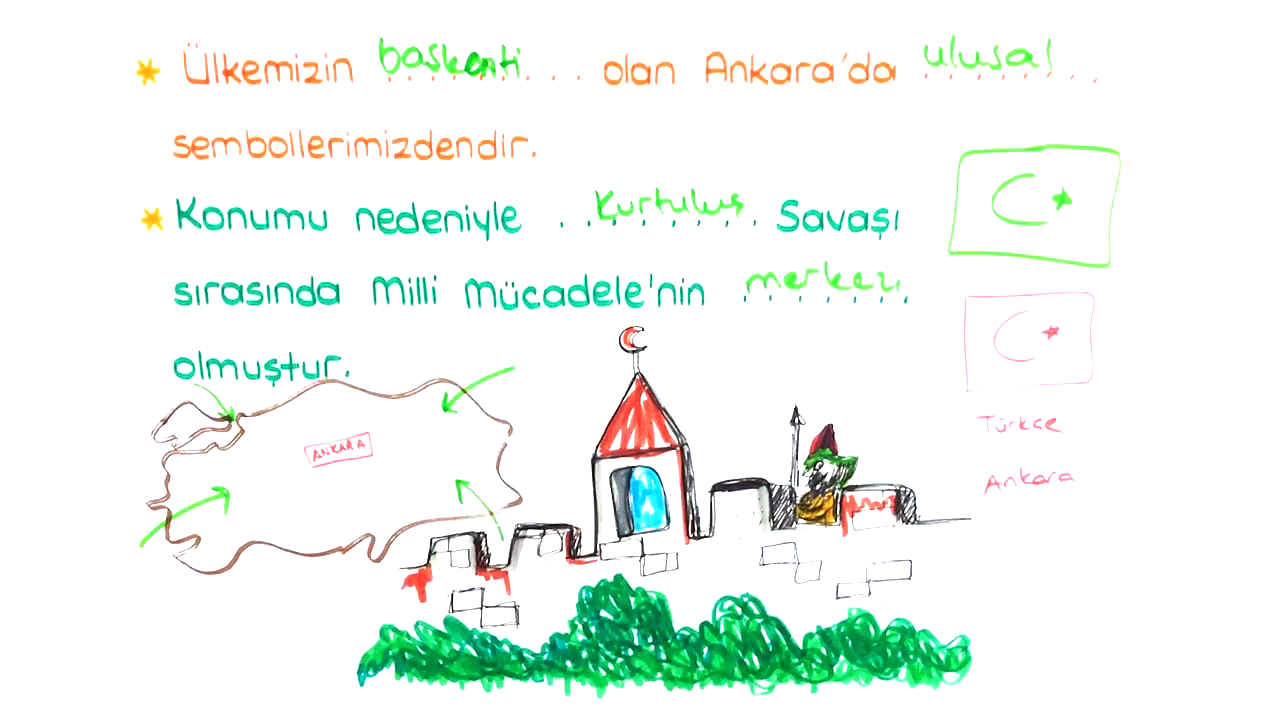 Ülkemizin başkenti olan Ankara'da ulusal
sembollerimizdendir.
Konumu nedeniyle Kurtuluş Savaşı
sırasında Milli Mücadele'nin merkezi
olmuştur.
ANKARA
Türkçe
Ankara